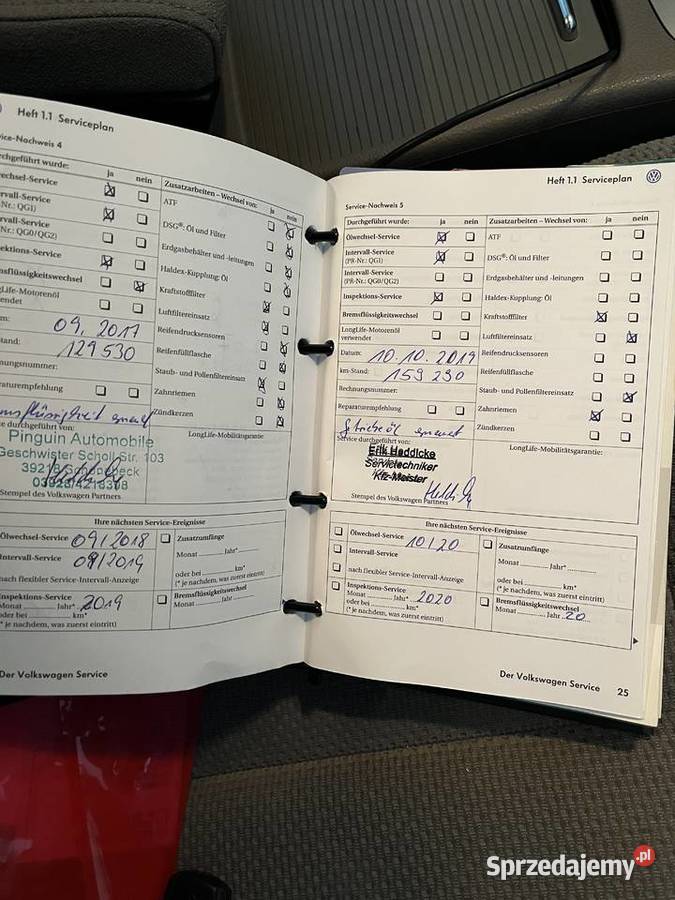 Heft 1.1 Serviceplan
ice-Nachweis 4
rchgeführt wurde:
ja
nein
Zusatzarbeiten – Wechsel von:
ja
nein
wechsel-Service
ATF
rvall-Service
Nr.: QG1)
DSG®: Öl und Filter
rvall-Service
Nr.: QG0/QG2)
Erdgasbehälter und -leitungen
ektions-Service
Haldex-Kupplung: Öl
msflüssigkeitswechsel
Kraftstofffilter
gLife-Motorenöl
endet
Luftfiltereinsatz
m: 09. 2017
Reifendrucksensoren
tand: 129 530
Reifenfüllflasche
hnungsnummer:
Staub- und Pollenfiltereinsatz
araturempfehlung
Zahnriemen
Zündkerzen
ce durchgeführt von:
LongLife-Mobilitätsgarantie:
Pinguin Automobile
Geschwister Scholl Str. 103
Stempel des Volkswagen Partners
Ihre nächsten Service-Ereignisse
Ölwechsel-Service 09/2018
Zusatzumfänge
Intervall-Service 09/2019
Monat Jahr*
nach flexibler Service-Intervall-Anzeige
oder bei km*
(* je nachdem, was zuerst eintritt)
Inspektions-Service
Monat Jahr* 2019
oder bei km*
(* je nachdem, was zuerst eintritt)
Bremsflüssigkeitswechsel
Monat Jahr
Der Volkswagen Service
Heft 1.1 Serviceplan
Service-Nachweis 5
Durchgeführt wurde:
ja
nein
Zusatzarbeiten – Wechsel von:
ja
nein
Ölwechsel-Service
ATF
Intervall-Service
(PR-Nr.: QG1)
DSG®: Öl und Filter
Intervall-Service
(PR-Nr.: QG0/QG2)
Erdgasbehälter und -leitungen
Inspektions-Service
Haldex-Kupplung: Öl
Bremsflüssigkeitswechsel
Kraftstofffilter
LongLife-Motorenöl
verwendet
Luftfiltereinsatz
Datum: 10.10.2019
Reifendrucksensoren
km-Stand: 159 230
Reifenfüllflasche
Rechnungsnummer:
Staub- und Pollenfiltereinsatz
Reparaturempfehlung
Zahnriemen
Zündkerzen
Service durchgeführt von:
LongLife-Mobilitätsgarantie:
Erik Heddicke
Servicetechniker
Kfz-Meister
Stempel des Volkswagen Partners
Ihre nächsten Service-Ereignisse
Ölwechsel-Service 10/20
Zusatzumfänge
Intervall-Service
Monat Jahr*
nach flexibler Service-Intervall-Anzeige
oder bei km*
(* je nachdem, was zuerst eintritt)
Inspektions-Service
Monat Jahr* 2020
oder bei km*
(* je nachdem, was zuerst eintritt)
Bremsflüssigkeitswechsel
Monat Jahr 20
Der Volkswagen Service
25
Sprzedajemy.pl